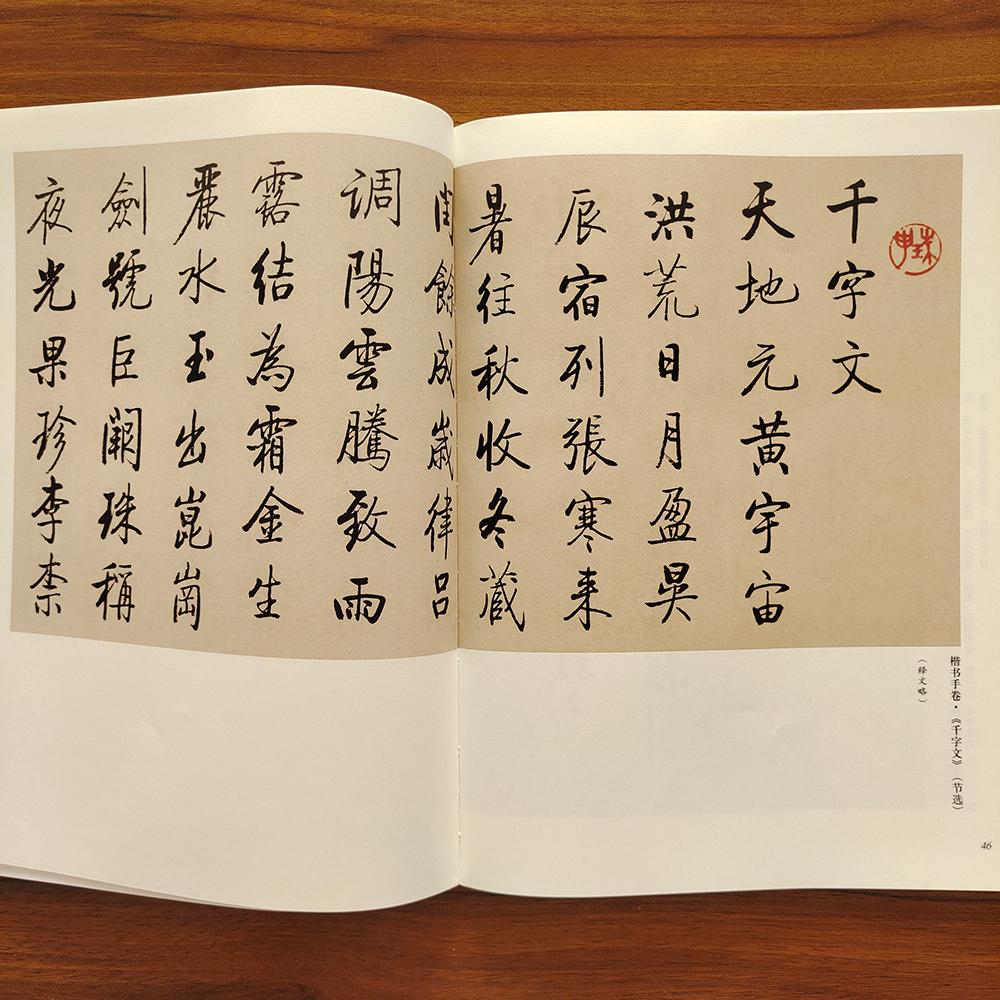 千字文
天地元黄宇宙
洪荒日月盈昃
辰宿列張寒来
暑往秋收冬蔵
閏餘成嵗律吕
調陽雲騰致雨
露結為霜金生
麗水玉出崑崗
劍號巨闕珠稱
夜光果珍李柰
楷书手卷·《千字文》（节选）
（释文略）
46